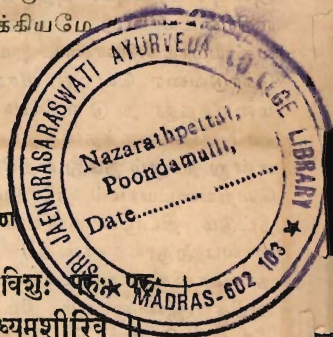 க்கியமே
SRI JAENDRASARASWATI AYURVEDA COLLEGE LIBRARY
Nazarathpettai,
Poondamulli,
Date.......... ............
★ MADRAS-602 103 ★
ண
विशुः परुः परुः ।
ध्यमशीरिव ॥